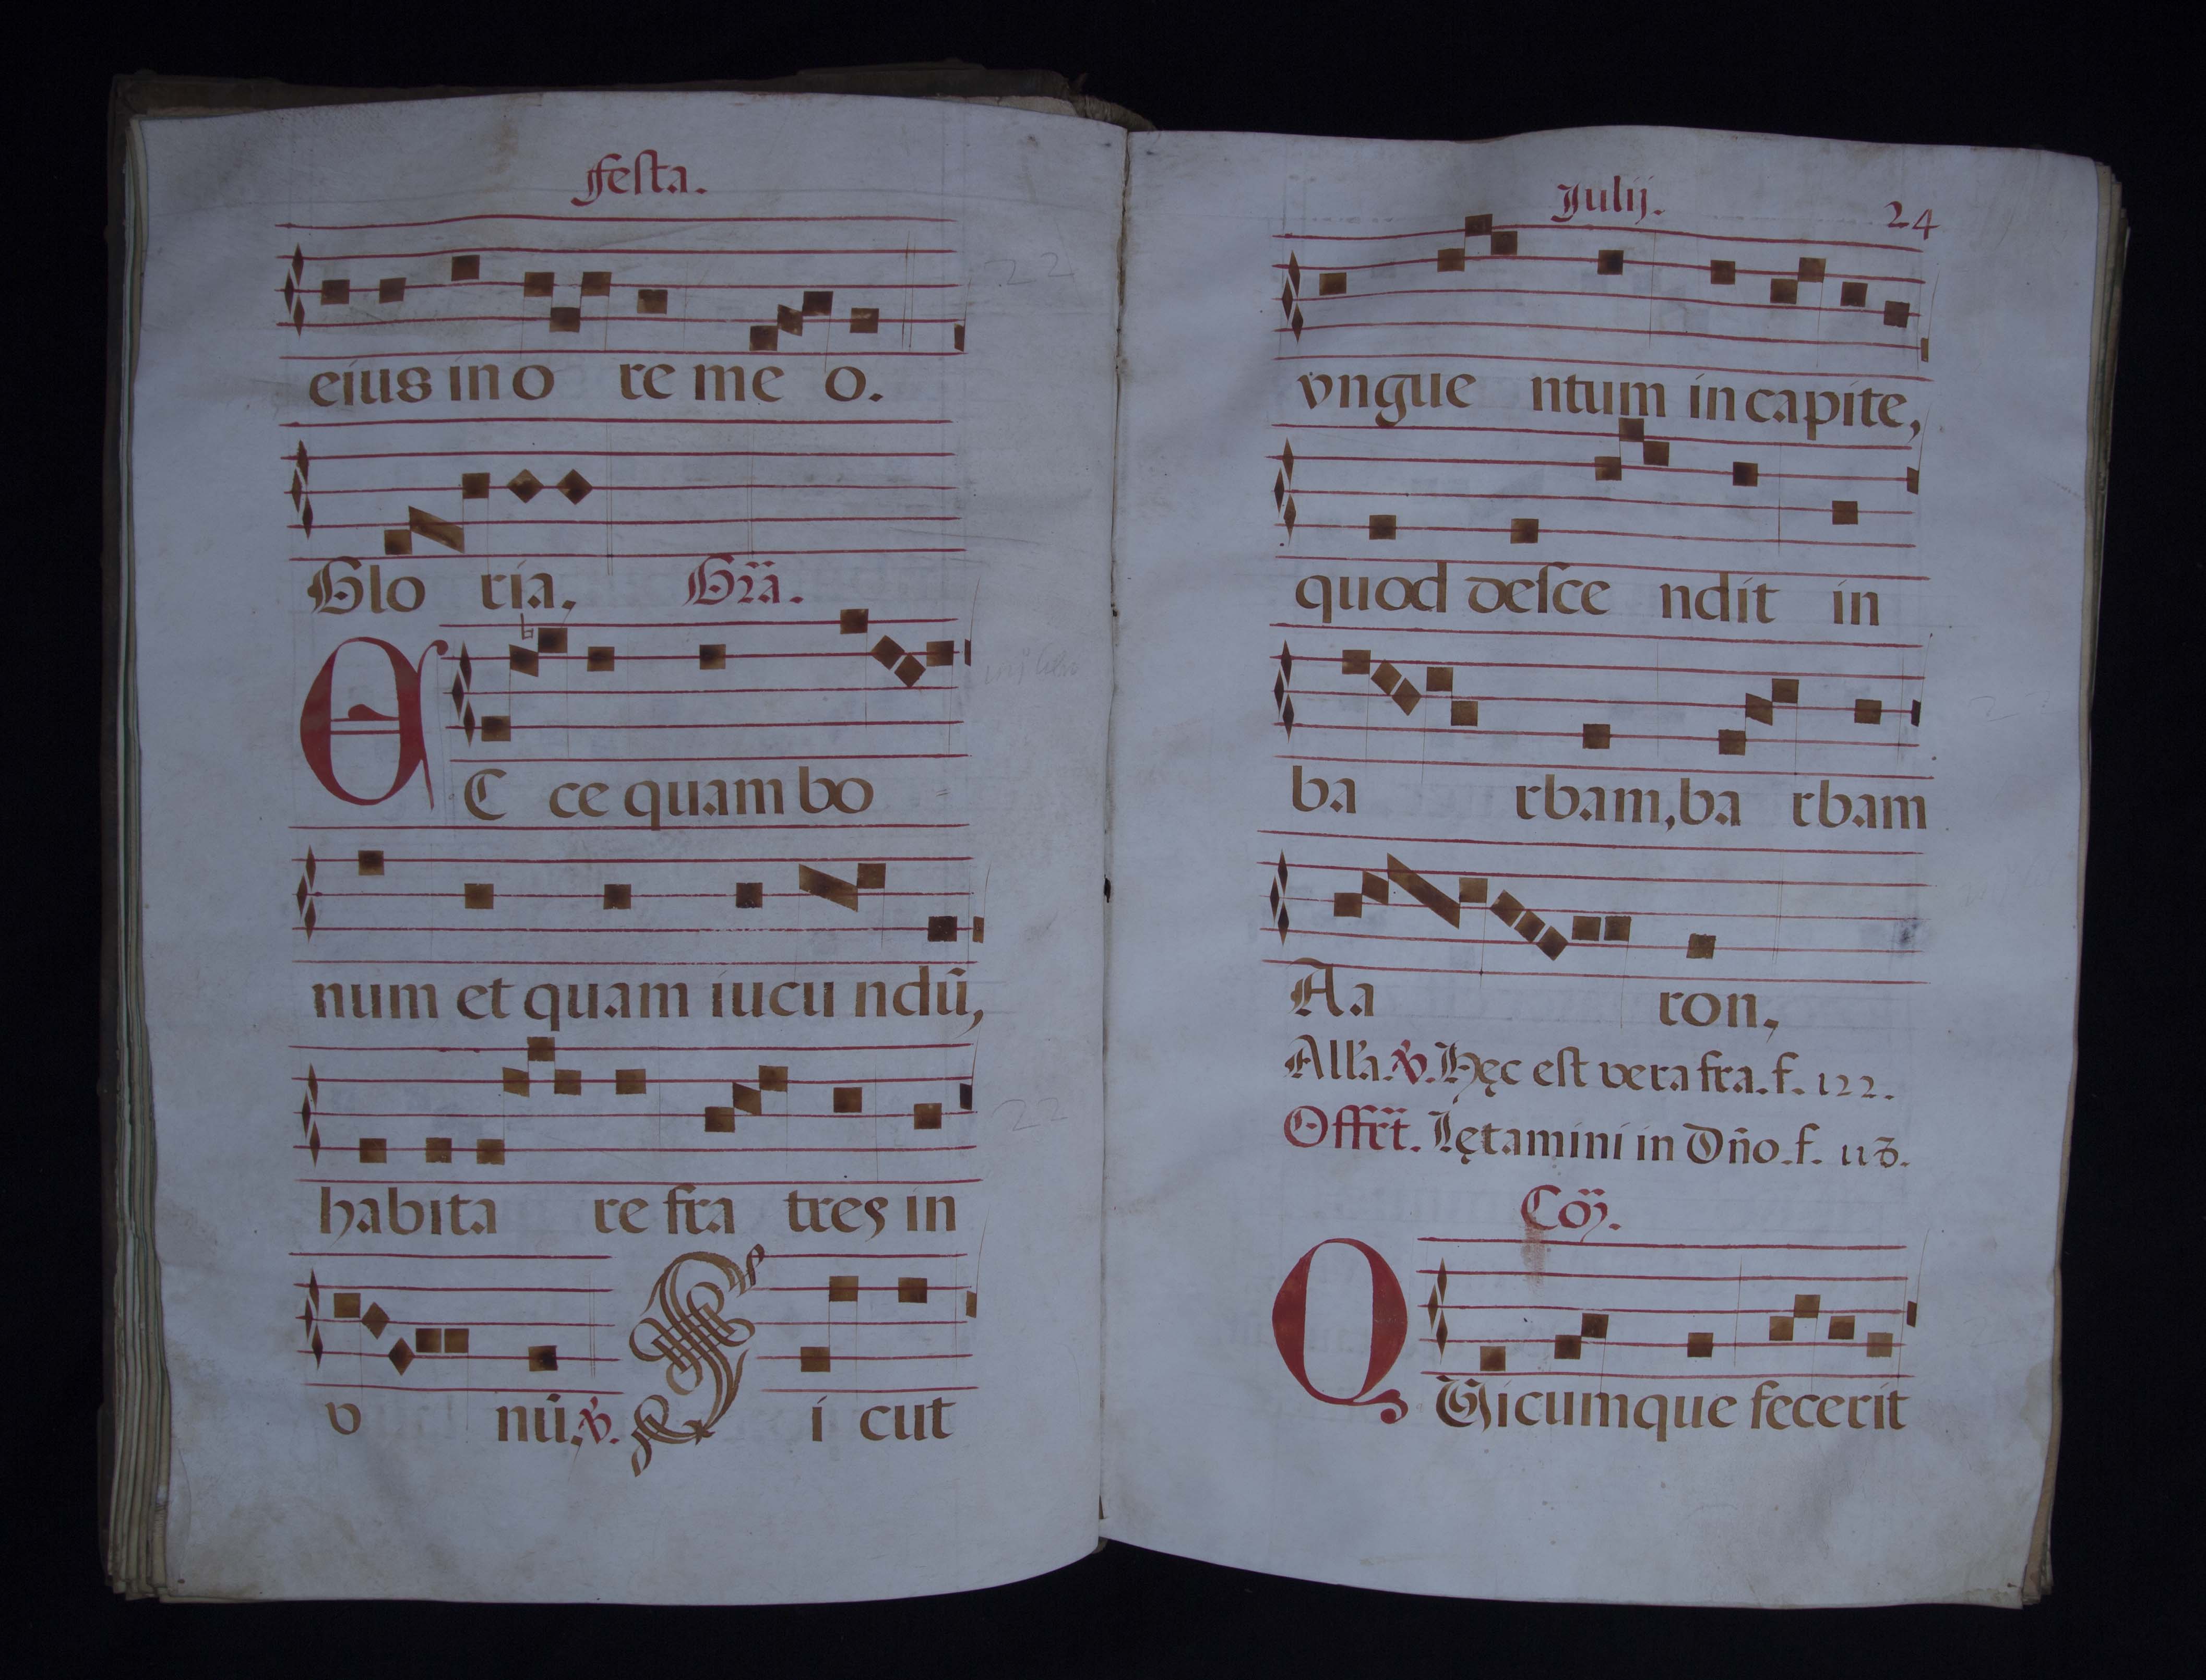 Festa.
22
eius in o re me o.
Glo ria, Gr̃a.
E C ce quam bo
num et quam iucu ndũ,
22
habita re fra tres in
v nũ, ℣. S i cut
Julij. 24
vngue ntum in capite,
quod desce ndit in
ba rbam, ba rbam
Aa ron,
All'a. ℣. Hęc est vera fra. f. 122.
Offrt̃. Lętamini in Dño. f. 118.
Cõ.
Q Vicumque fecerit